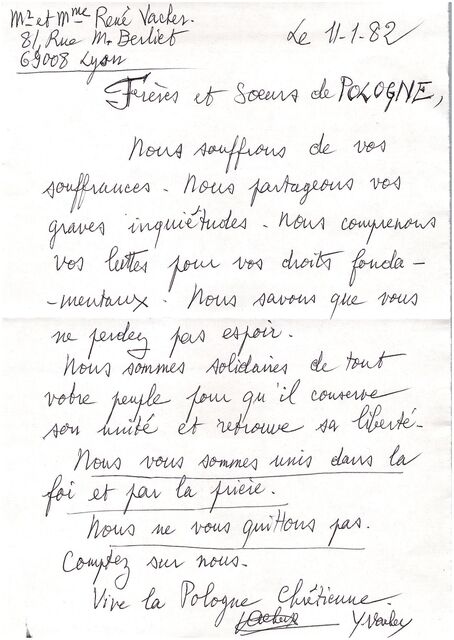 Mr et Mme René Vacher.
81, Rue M. Berliet
69008 Lyon
Le 11-1-82
Frères et Soeurs de POLOGNE,
Nous souffrons de vos
souffrances. Nous partageons vos
graves inquiétudes. Nous comprenons
vos luttes pour vos droits fonda-
-mentaux. Nous savons que vous
ne perdez pas espoir.
Nous sommes solidaires de tout
votre peuple pour qu'il conserve
son unité et retrouve sa liberté.
Nous vous sommes unis dans la
foi et par la prière.
Nous ne vous quittons pas.
Comptez sur nous.
Vive la Pologne Chrétienne.
Vacher YVacher